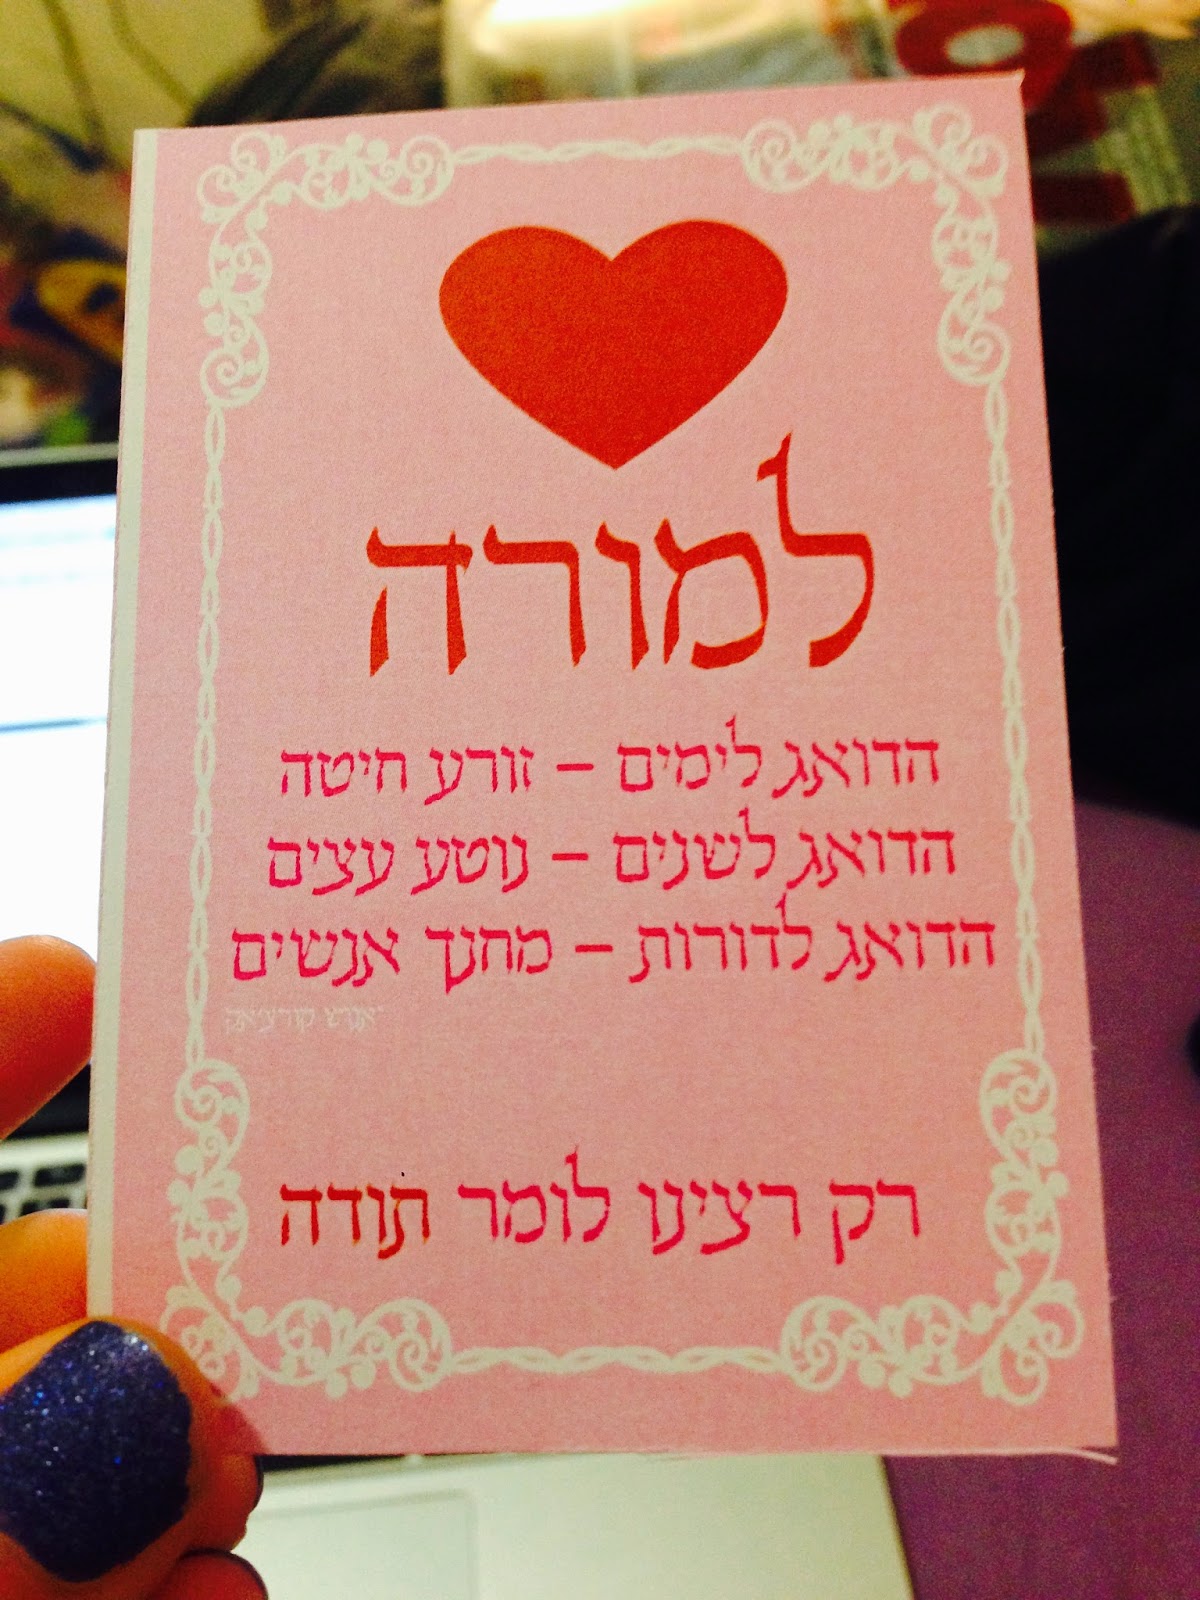 למורה
הדואג לימים – זורע חיטה
הדואג לשנים – נוטע עצים
הדואג לדורות – מחנך אנשים
יאנוש קורצ'אק
רק רצינו לומר תודה